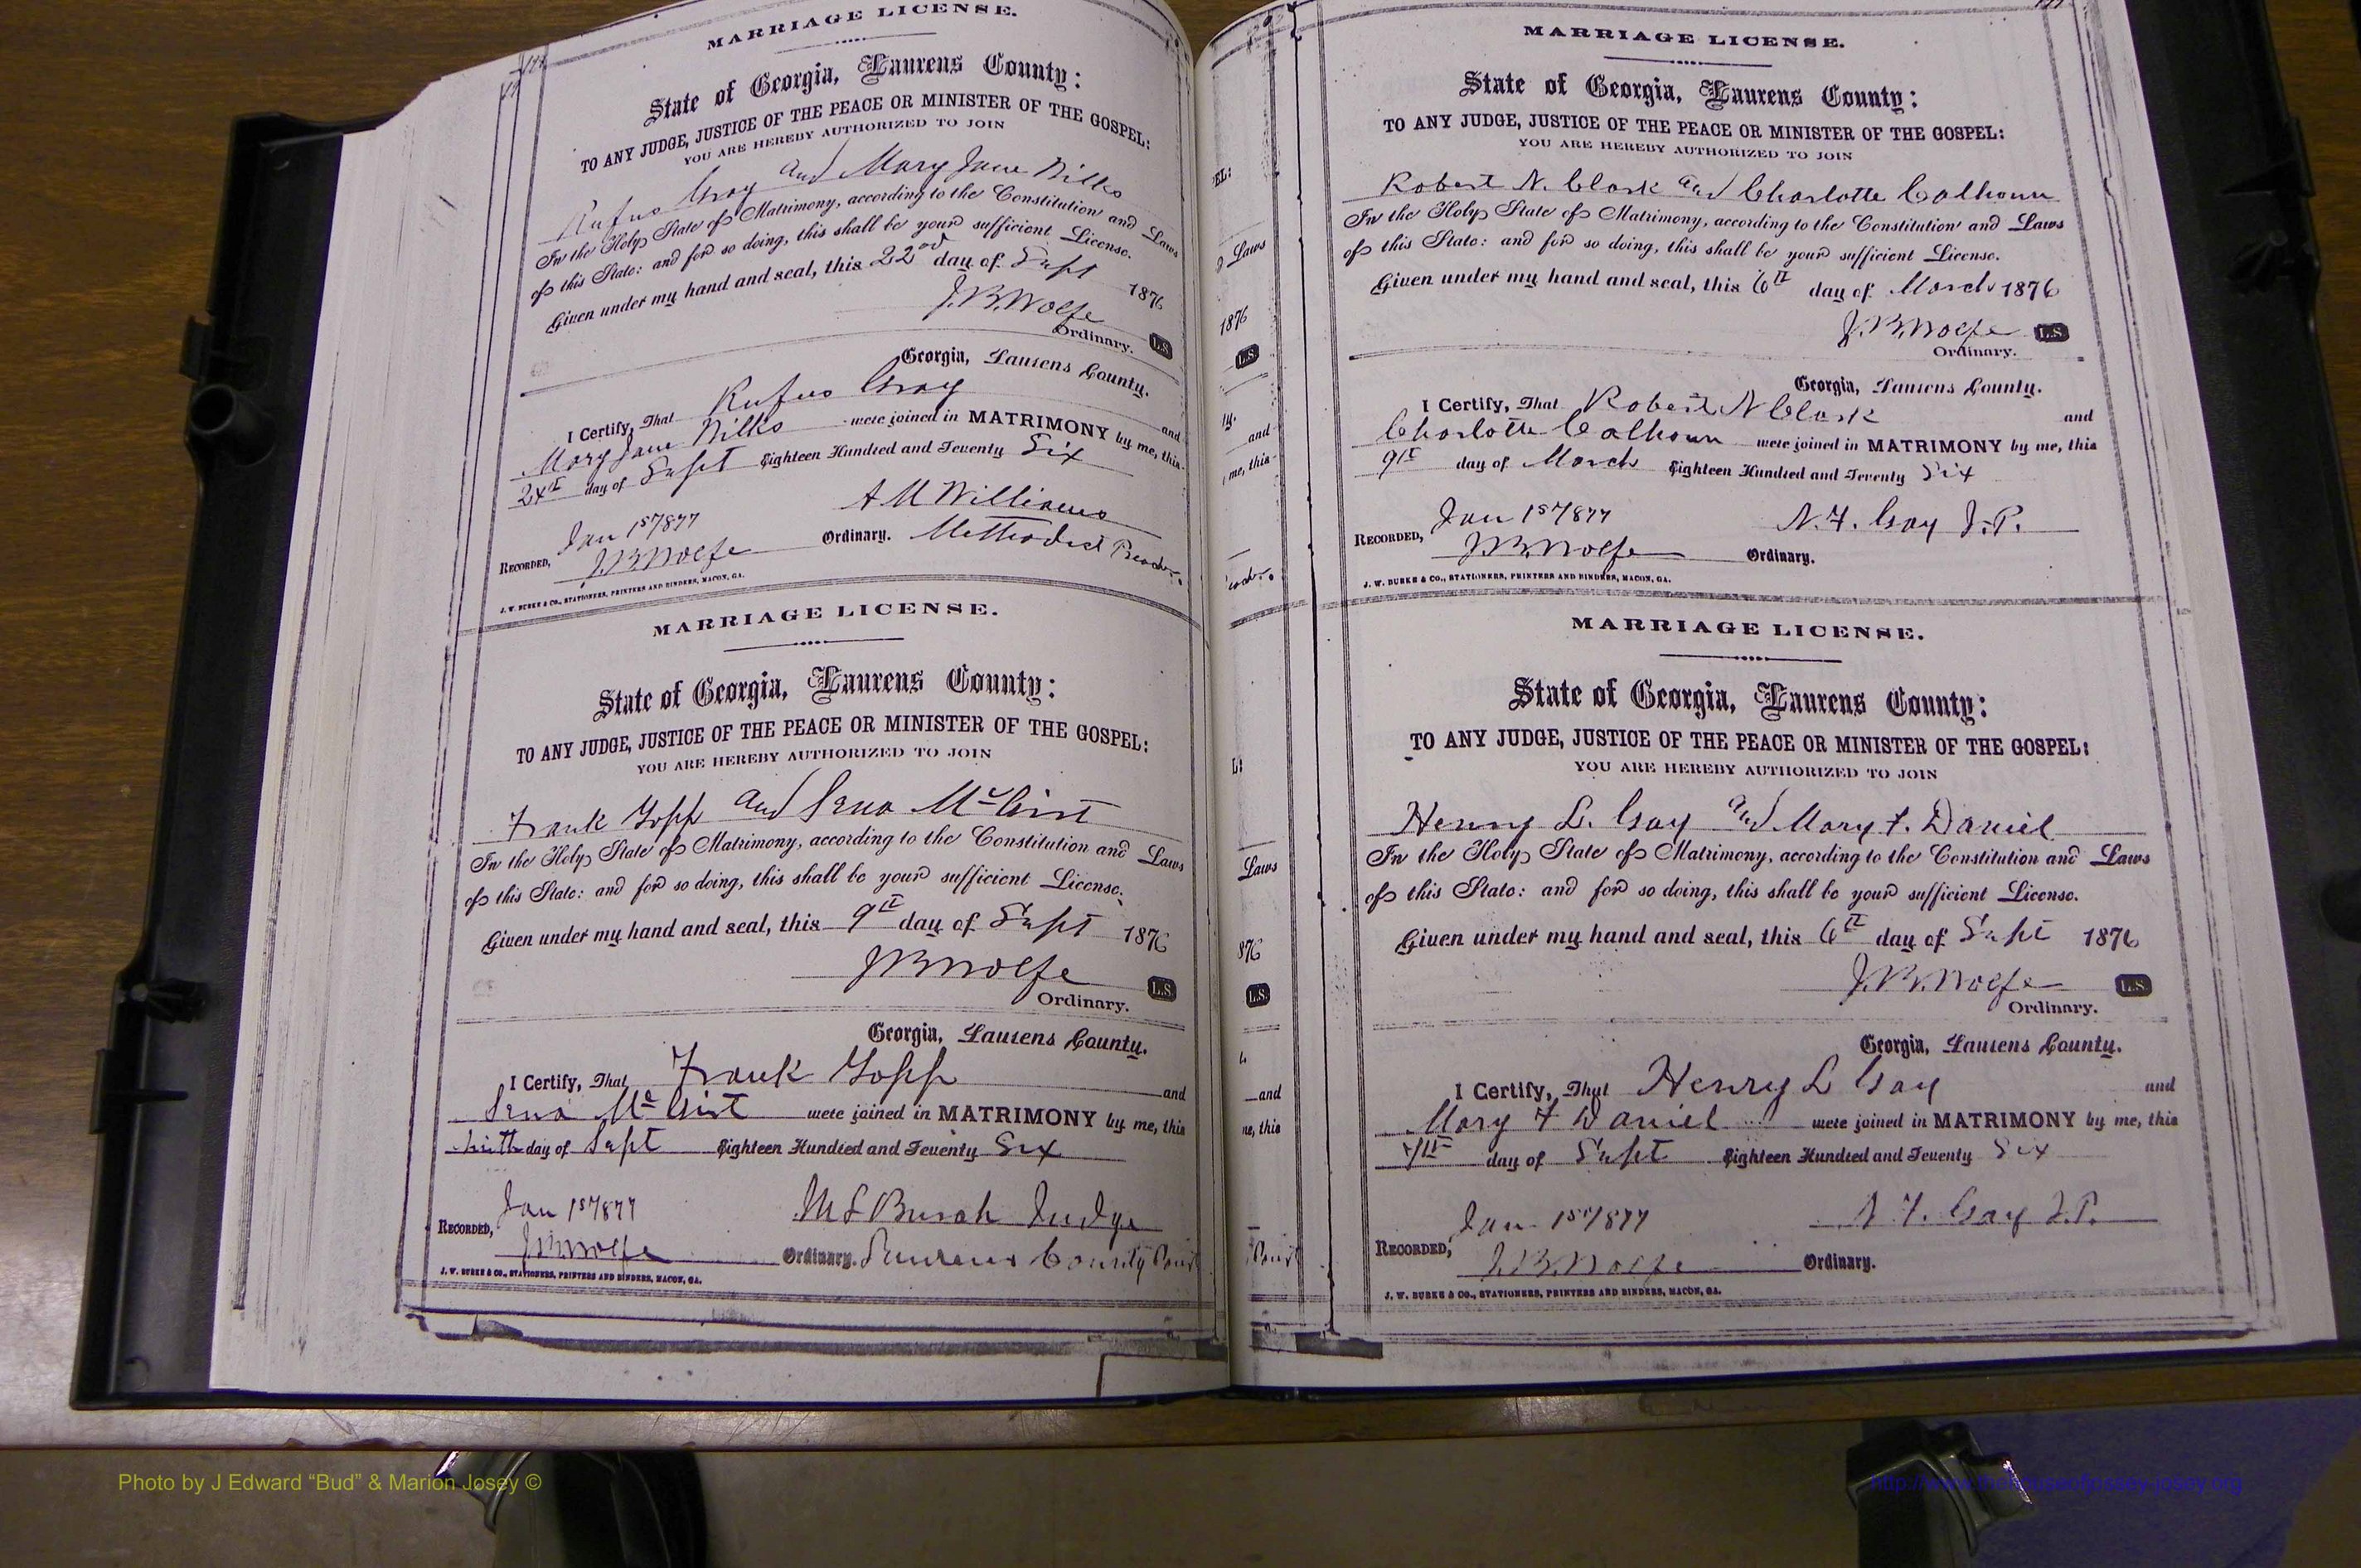 MARRIAGE LICENSE.
State of Georgia, Laurens County:
TO ANY JUDGE, JUSTICE OF THE PEACE OR MINISTER OF THE GOSPEL:
YOU ARE HEREBY AUTHORIZED TO JOIN
Rufus Gray and Mary Jane Wilks
In the Holy State of Matrimony, according to the Constitution and Laws
of this State: and for so doing, this shall be your sufficient License.
Given under my hand and seal, this 22nd day of Sept 1876
J.B. Wolfe
Ordinary. L.S.
Georgia, Laurens County.
I Certify, That Rufus Gray and
Mary Jane Wilks were joined in MATRIMONY by me, this
24th day of Sept Eighteen Hundred and Seventy Six
A M Williams
Recorded, Jan 1st 1877
J.B. Wolfe Ordinary. Methodist Preachr.
J. W. BURKE & CO., STATIONERS, PRINTERS AND BINDERS, MACON, GA.
MARRIAGE LICENSE.
State of Georgia, Laurens County:
TO ANY JUDGE, JUSTICE OF THE PEACE OR MINISTER OF THE GOSPEL:
YOU ARE HEREBY AUTHORIZED TO JOIN
Frank and
In the Holy State of Matrimony, according to the Constitution and Laws
of this State: and for so doing, this shall be your sufficient License.
Given under my hand and seal, this 9th day of Sept 1876
J B Wolfe
Ordinary. L.S.
Georgia, Laurens County.
I Certify, That Frank and
were joined in MATRIMONY by me, this
day of Sept Eighteen Hundred and Seventy Six
Jan 1st 1877 M L Burch Judge
Recorded, J B Wolfe Ordinary. Laurens County Court
J. W. BURKE & CO., STATIONERS, PRINTERS AND BINDERS, MACON, GA.
MARRIAGE LICENSE.
State of Georgia, Laurens County:
TO ANY JUDGE, JUSTICE OF THE PEACE OR MINISTER OF THE GOSPEL:
YOU ARE HEREBY AUTHORIZED TO JOIN
Robert N. Clark and Charlotte Calhoun
In the Holy State of Matrimony, according to the Constitution and Laws
of this State: and for so doing, this shall be your sufficient License.
Given under my hand and seal, this 6th day of March 1876
J.B. Wolfe L.S.
Ordinary.
Georgia, Laurens County.
I Certify, That Robert N Clark and
Charlotte Calhoun were joined in MATRIMONY by me, this
9th day of March Eighteen Hundred and Seventy Six
Jan 1st 1877 N. F. Gay J.P.
Recorded, J.B. Wolfe Ordinary.
J. W. BURKE & CO., STATIONERS, PRINTERS AND BINDERS, MACON, GA.
MARRIAGE LICENSE.
State of Georgia, Laurens County:
TO ANY JUDGE, JUSTICE OF THE PEACE OR MINISTER OF THE GOSPEL:
YOU ARE HEREBY AUTHORIZED TO JOIN
Henry L. Gay and Mary F. Daniel
In the Holy State of Matrimony, according to the Constitution and Laws
of this State: and for so doing, this shall be your sufficient License.
Given under my hand and seal, this 6th day of Sept 1876
J.B. Wolfe L.S.
Ordinary.
Georgia, Laurens County.
I Certify, That Henry L Gay and
Mary F Daniel were joined in MATRIMONY by me, this
7th day of Sept Eighteen Hundred and Seventy Six
Jan 1st 1877 N F. Gay J.P.
Recorded, J.B. Wolfe Ordinary.
J. W. BURKE & CO., STATIONERS, PRINTERS AND BINDERS, MACON, GA.
Photo by J Edward “Bud” & Marion Josey ©